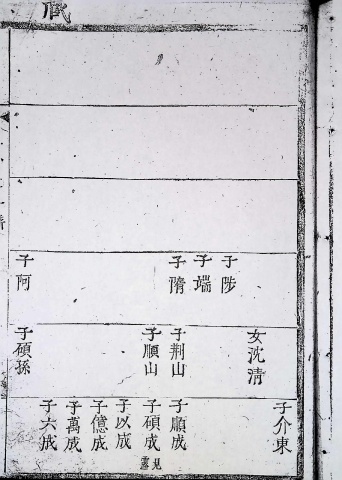 子陟
子端
子隋
子阿
女沈淸
子荆山
子順山
子碩孫
子介東
子順成
子碩成
見
子以成
子億成
子萬成
子六成